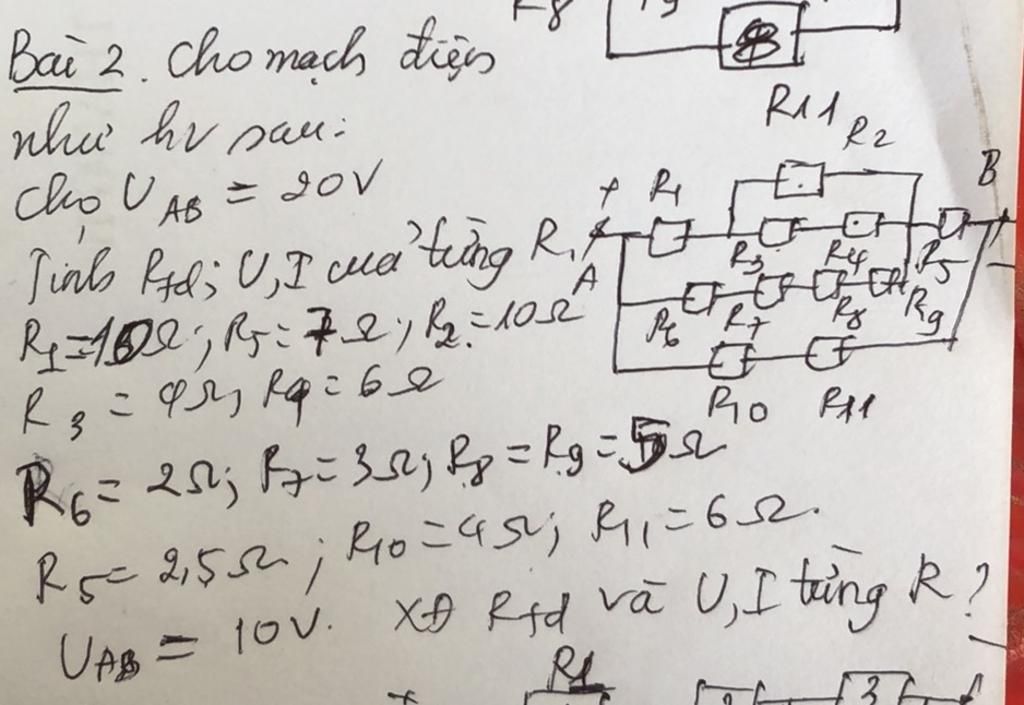 R8
R11
Bài 2. Cho mạch điện
như hv sau:
Cho UAB = 20V
Tính Rtđ; U, I của từng R.
R1=10Ω; R5=7Ω; R2=10Ω
R3 = 4Ω, R4 = 6Ω
R6 = 2Ω; R7 = 3Ω; R8 = R9 = 5Ω
R5 = 2,5Ω; R10 = 4Ω; R11 = 6Ω.
UAB = 10V. XĐ Rtđ và U, I từng R?
R2
+ R1 B
A R3 R4 R5
R6 R7 R8 R9
R10 R11
R1
+ 2 3